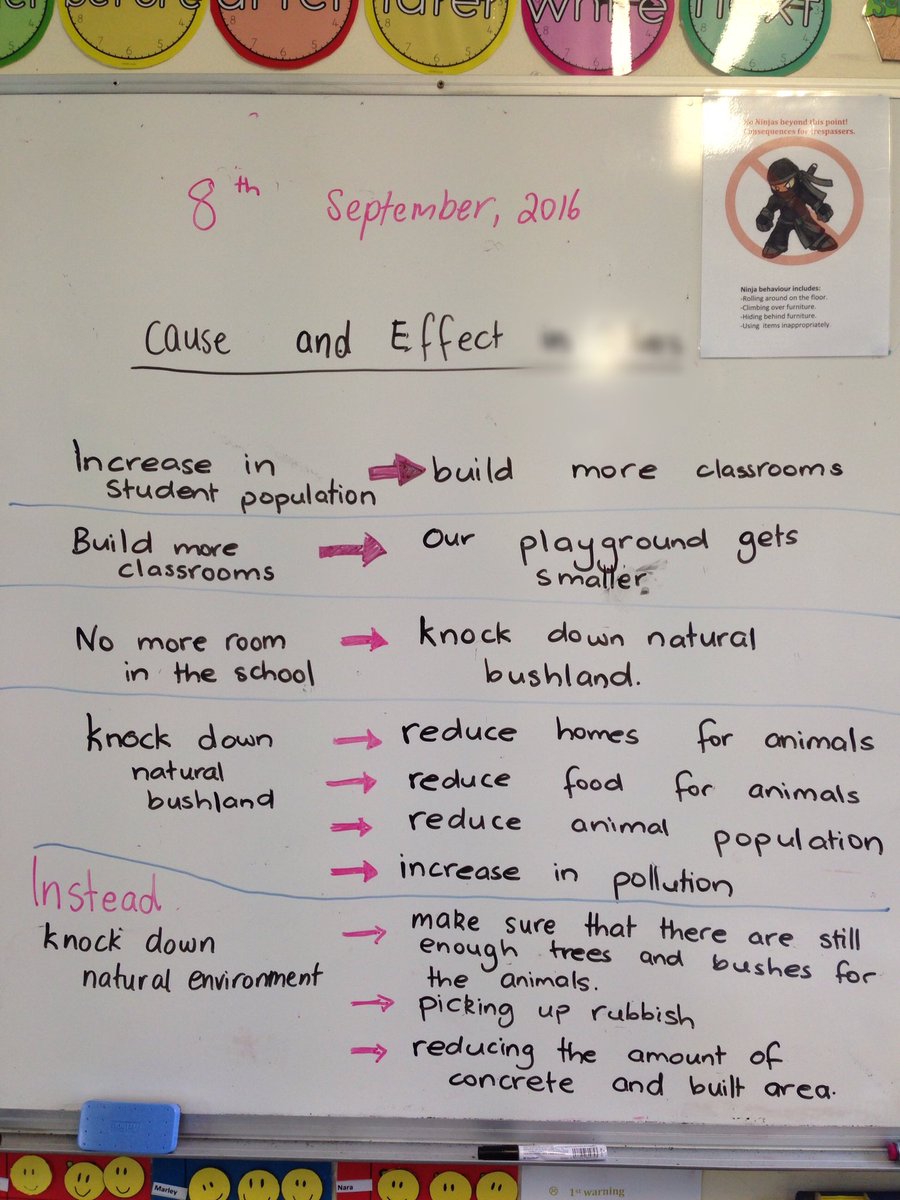 before
after
later
while
next
No Ninjas beyond this point!
Consequences for trespassers.
8th September, 2016
Ninja behaviour includes:
-Rolling around on the floor.
-Climbing over furniture.
-Hiding behind furniture.
-Using items inappropriately
Cause and Effect
Increase in build more classrooms
student population
Build more Our playground gets
classrooms smaller
No more room knock down natural
in the school bushland.
knock down reduce homes for animals
natural reduce food for animals
bushland
reduce animal population
increase in pollution
Instead
knock down make sure that there are still
natural environment enough trees and bushes for
the animals.
picking up rubbish
reducing the amount of
concrete and built area.
Marley
Nara
1st warning